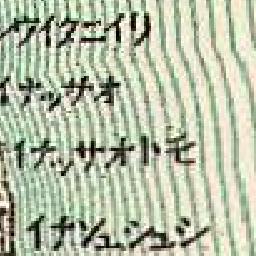 ンワイクニイリ
イナッサオ
イナッサオトモ
イナソュシュシ